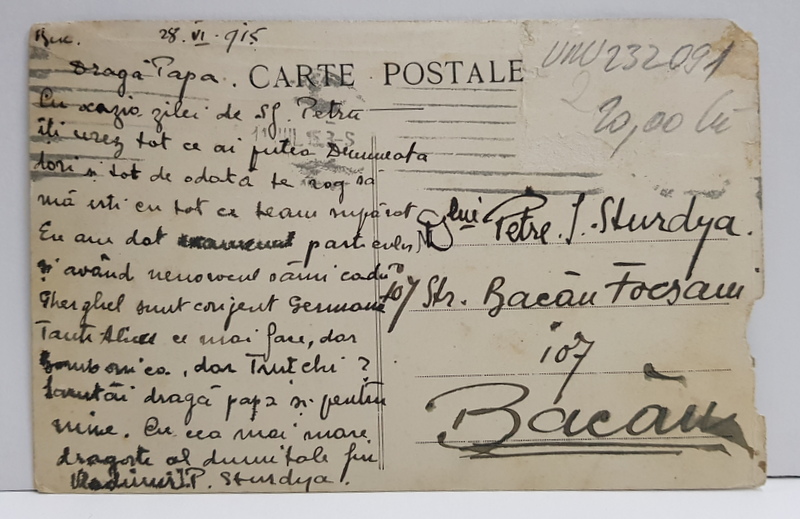 Buc. 28. VI. 915
Dragă Papa.
CARTE POSTALE
Cu ocazia zilei de Sf. Petru
îți urez tot ce ai putea Dumneata
dori și tot de odată te rog să
mă ierți cu tot ce team supărat
Eu am dat examenul particular
și având nenorocul sămi cadă
Gherghel sunt corijent Germană
Tanti Alice ce mai face, dar
Bombonica, dar Trutchi?
Sărutăi dragă papa și pentru
mine. Cu cea mai mare
dragoste al dumitale fiu
Vladimir P. Sturdza.
VMV232091
20,00 lei
Dlui Petre. I. Sturdza.
107 Str. Bacău Focșani
107
Bacău